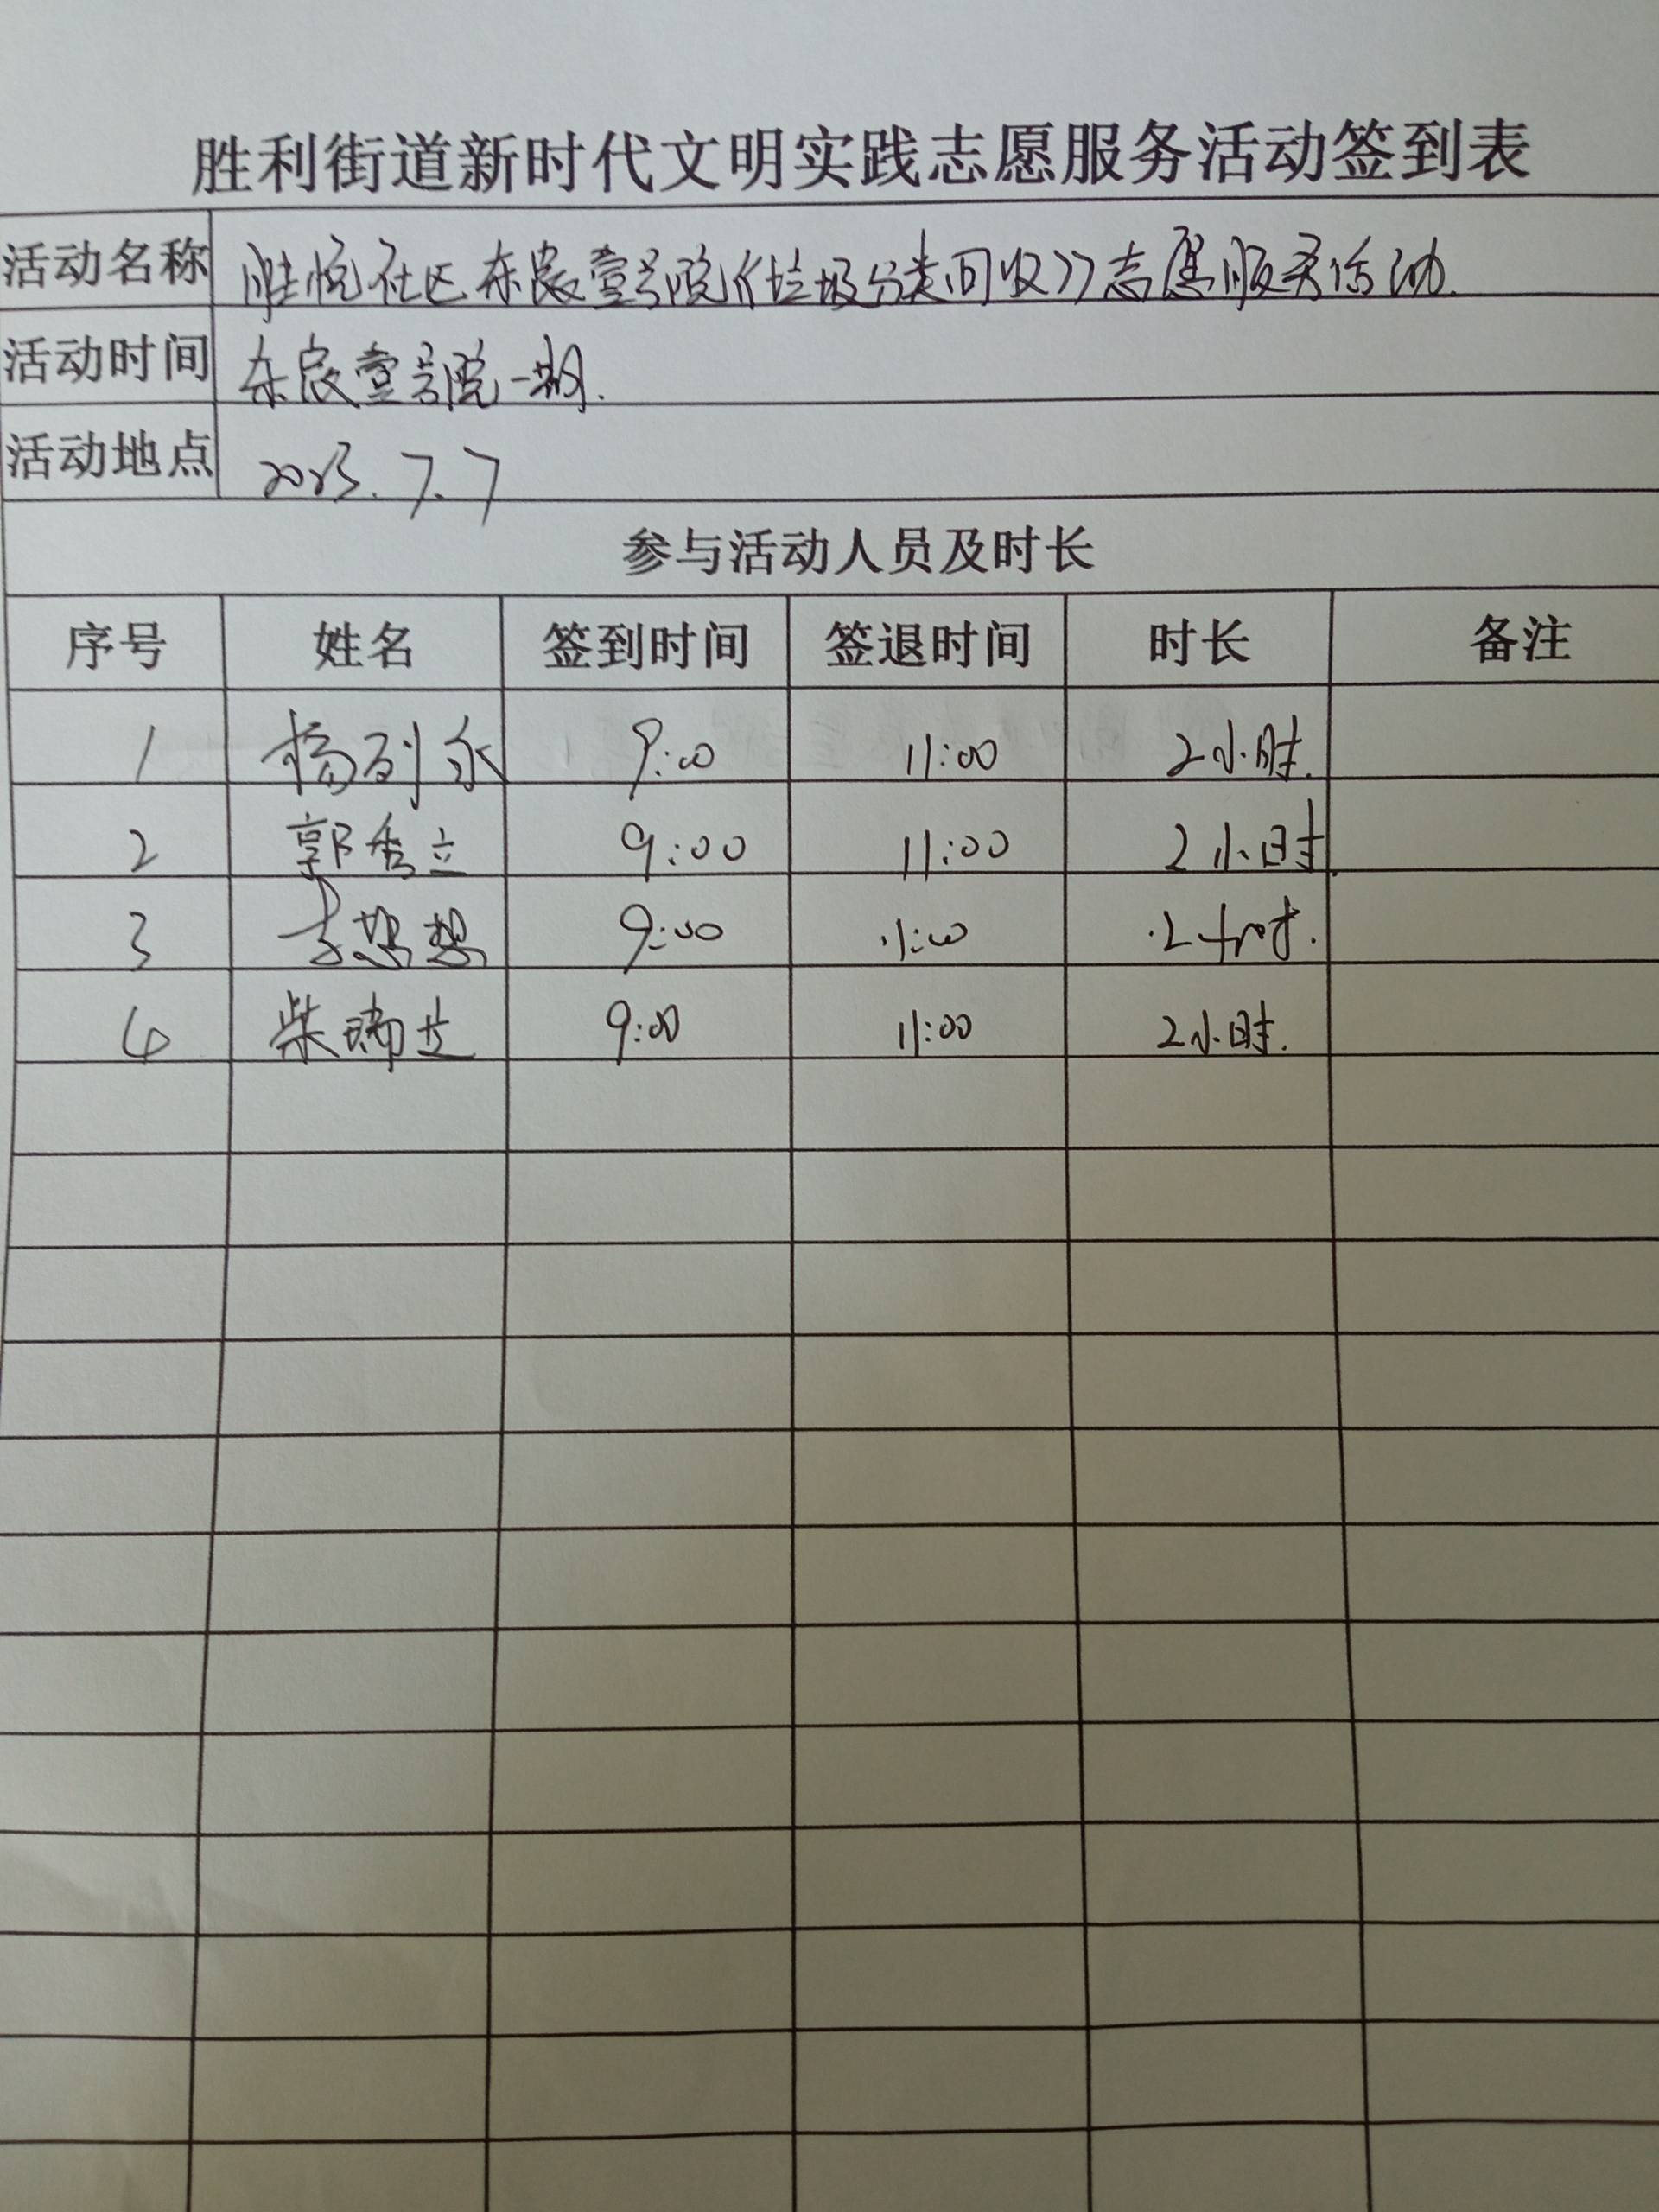 胜利街道新时代文明实践志愿服务活动签到表
活动名称 胜悦社区东宸壹号院《垃圾分类回收》志愿服务活动.
活动时间 东宸壹号院一期.
活动地点 2023.7.7
参与活动人员及时长
序号 姓名 签到时间 签退时间 时长 备注
1 9:00 11:00 2小时.
2 郭秀立 9:00 11:00 2小时.
3 李想想 9:00 11:00 2小时.
4 柴瑞芝 9:00 11:00 2小时.